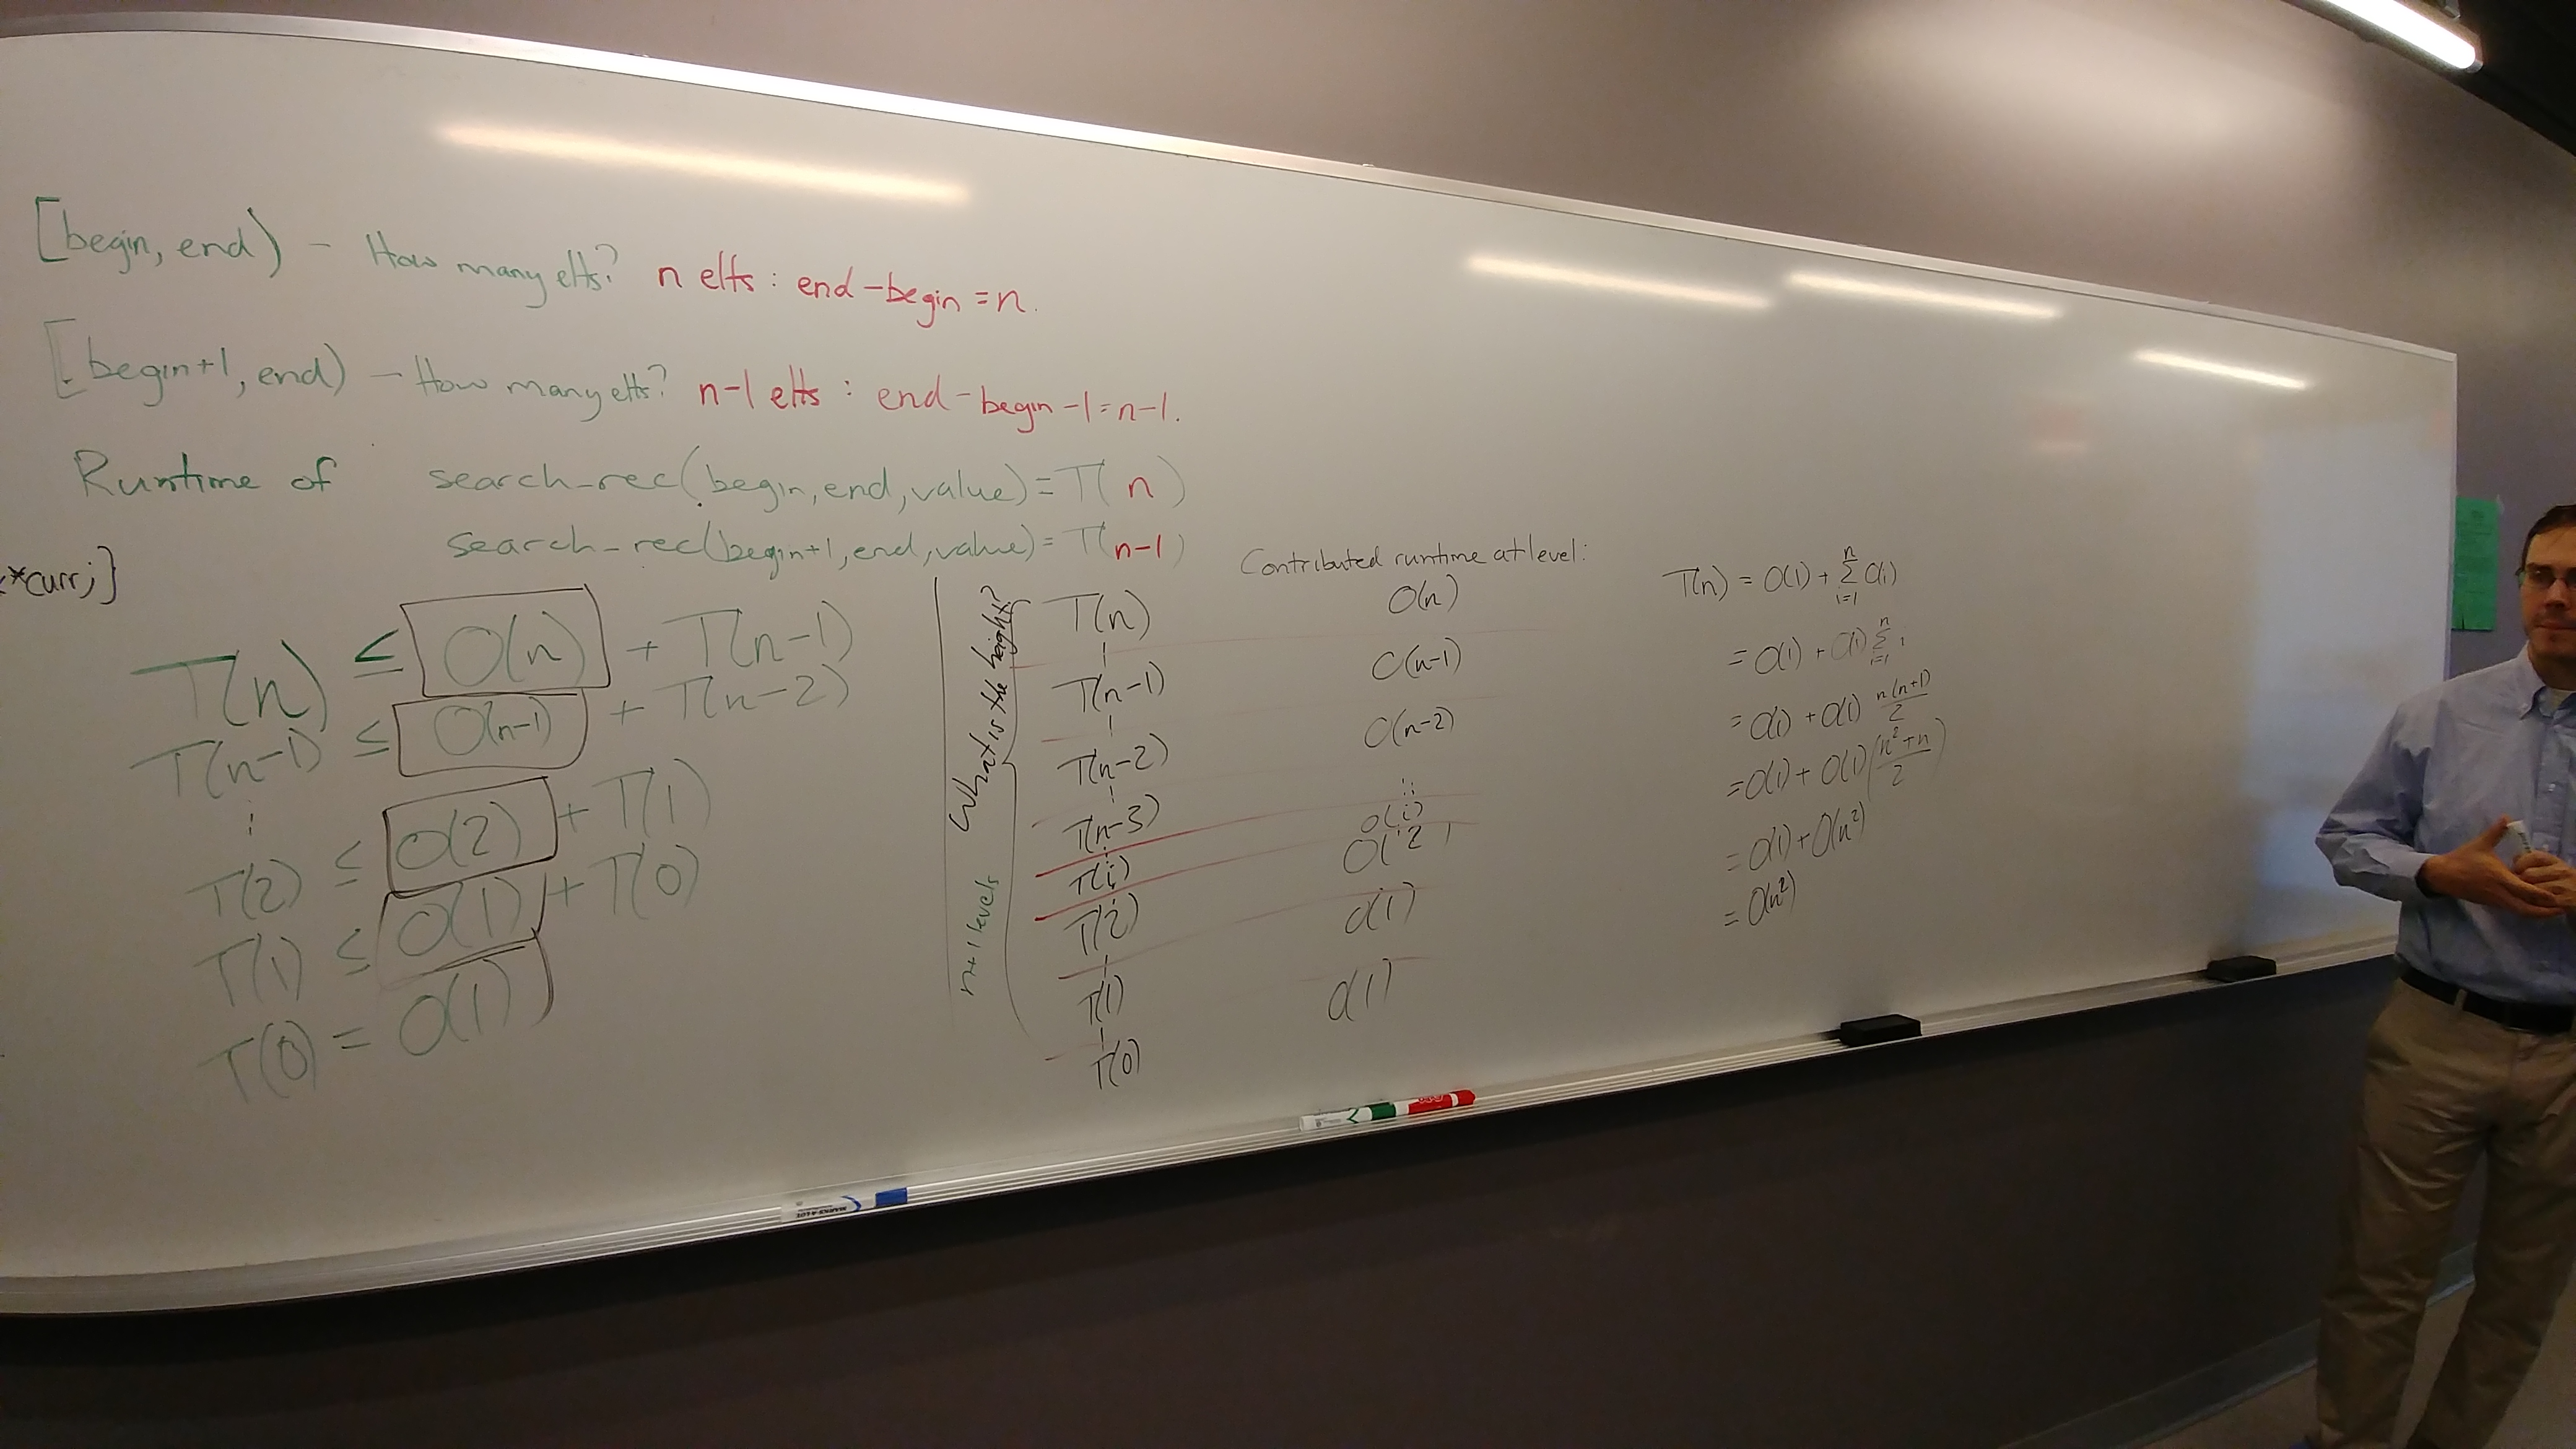 [begin, end) - How many elts? n elts : end - begin = n.
[begin+1, end) - How many elts? n-1 elts : end - begin - 1 = n-1.
Runtime of search_rec(begin, end, value) = T(n)
search_rec(begin+1, end, value) = T(n-1)
*curr; }
T(n) ≤ O(n) + T(n-1)
T(n-1) ≤ O(n-1) + T(n-2)
⋮
T(2) ≤ O(2) + T(1)
T(1) ≤ O(1) + T(0)
T(0) = O(1)
What is the height?
n+1 levels
T(n)
T(n-1)
T(n-2)
T(n-3)
T(i)
T(2)
T(1)
T(0)
Contributed runtime at level:
O(n)
O(n-1)
O(n-2)
⋮
O(i)
O(2)
O(1)
O(1)
T(n) = O(1) + Σ_{i=1}^{n} O(i)
= O(1) + O(1) Σ_{i=1}^{n} i
= O(1) + O(1) n(n+1)/2
= O(1) + O(1) (n²+n)/2
= O(1) + O(n²)
= O(n²)
MARKS-A-LOT